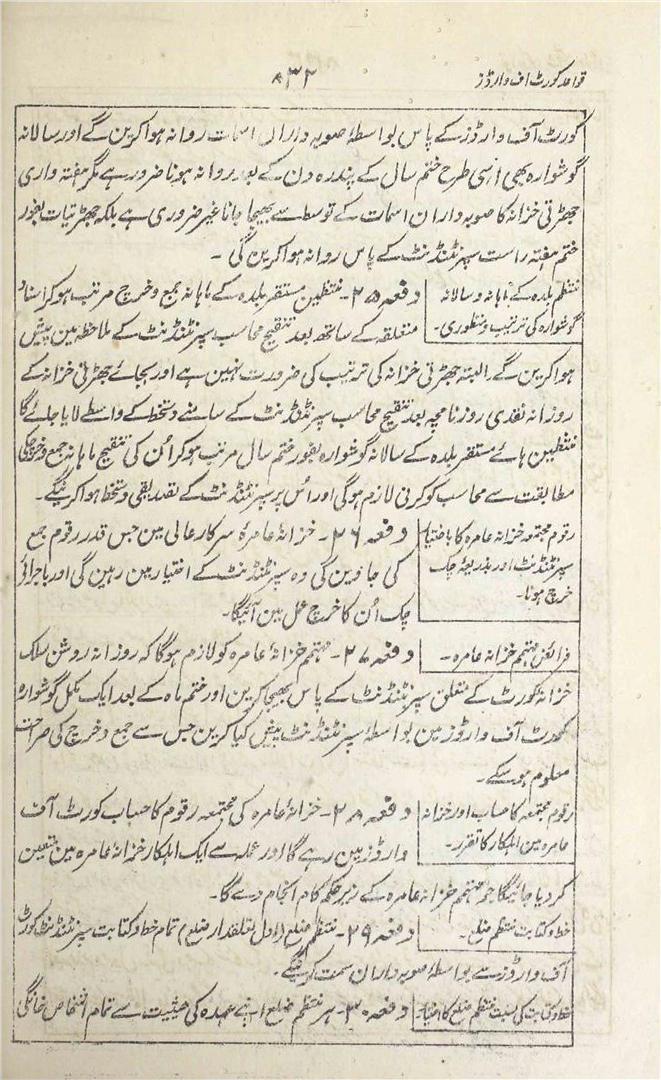 قواعد کورٹ آف وارڈز
۸۳۲
کورٹ آف وارڈز کے پاس بواسطۂ صوبہ داران اسمات روانہ ہوا کرین گے اور سالانہ
گوشوارہ بھی اسی طرح ختم سال کے پندرہ دن کے بعد روانہ ہونا ضرور ہے مگر ہفتہ واری
جھڑتی خزانہ کا صوبہ داران اسمات کے توسط سے بھیجا جانا غیر ضروری ہے بلکہ جھڑتیات بفور
ختم ہفتہ راست سپرنٹنڈنٹ کے پاس روانہ ہوا کرین گی ۔
منتظم بلدہ کے ماہانہ و سالانہ
گوشوارہ کی ترتیب و منظوری۔
دفعہ ۲۵۔ منتظمین مستقر بلدہ کے ماہانہ جمع و خرچ مرتب ہو کر اسناد
متعلقہ کے ساتھ بعد تنقیح محاسب سپرنٹنڈنٹ کے ملاحظہ مین پیش
ہوا کرین گے البتہ جھڑتی خزانہ کی ترتیب کی ضرورت نہین ہے اور بجائے جھڑتی خزانہ کے
روزانہ نقدی روزنامچہ بعد تنقیح محاسب سپرنٹنڈنٹ کے سامنے دستخط کے واسطے لایا جائے گا
منتظمین ہائے مستقر بلدہ کے سالانہ گوشوارہ بفور ختم سال مرتب ہو کر اُن کی تنقیح ماہانہ جمع و خرچ کی
مطابقت سے محاسب کو کرنی لازم ہوگی اور اُس پر سپرنٹنڈنٹ کے تصدیقی دستخط ہوا کرینگے۔
رقوم مجتمعہ خزانہ عامرہ کا باختیار
سپرنٹنڈنٹ اور بذریعہ چک
خرچ ہونا۔
دفعہ ۲۶۔ خزانۂ عامرۂ سرکار عالی مین جس قدر رقوم جمع
کی جاوین گی وہ سپرنٹنڈنٹ کے اختیار مین رہین گی اور باجرائی
چک اُن کا خرچ عمل مین آئیگا۔
فرائض مہتمم خزانہ عامرہ۔
دفعہ ۲۷۔ مہتمم خزانۂ عامرہ کو لازم ہوگا کہ روزانہ روشن سلک
خزانۂ کورٹ کے متعلق سپرنٹنڈنٹ کے پاس بھیجا کرین اور ختم ماہ کے بعد ایک مکمل گوشوارہ
کورٹ آف وارڈز مین بواسطۂ سپرنٹنڈنٹ پیش کیا کرین جس سے جمع و خرچ کی صراحت
معلوم ہو سکے۔
رقوم مجتمعہ کا حساب اور خزانہ
عامرہ مین اہلکار کا تقرر۔
دفعہ ۲۸۔ خزانۂ عامرہ کی مجتمعہ رقوم کا حساب کورٹ آف
وارڈز مین رہے گا اور عملہ سے ایک اہلکار خزانۂ عامرہ مین متعین
کر دیا جائیگا جو مہتمم خزانہ عامرہ کے زیر حکم کام انجام دے گا۔
خط و کتابت منتظم ضلع۔
دفعہ ۲۹۔ منتظم ضلع (اول تعلقدار ضلع) تمام خط و کتابت سپرنٹنڈنٹ کورٹ
آف وارڈز سے بواسطۂ صوبہ داران سمت کرینگے۔
خط و کتابت کی نسبت منتظم ضلع کا اختیار۔
دفعہ ۳۰۔ ہر منتظم ضلع اپنے عہدہ کی حیثیت سے تمام اشخاص خانگی